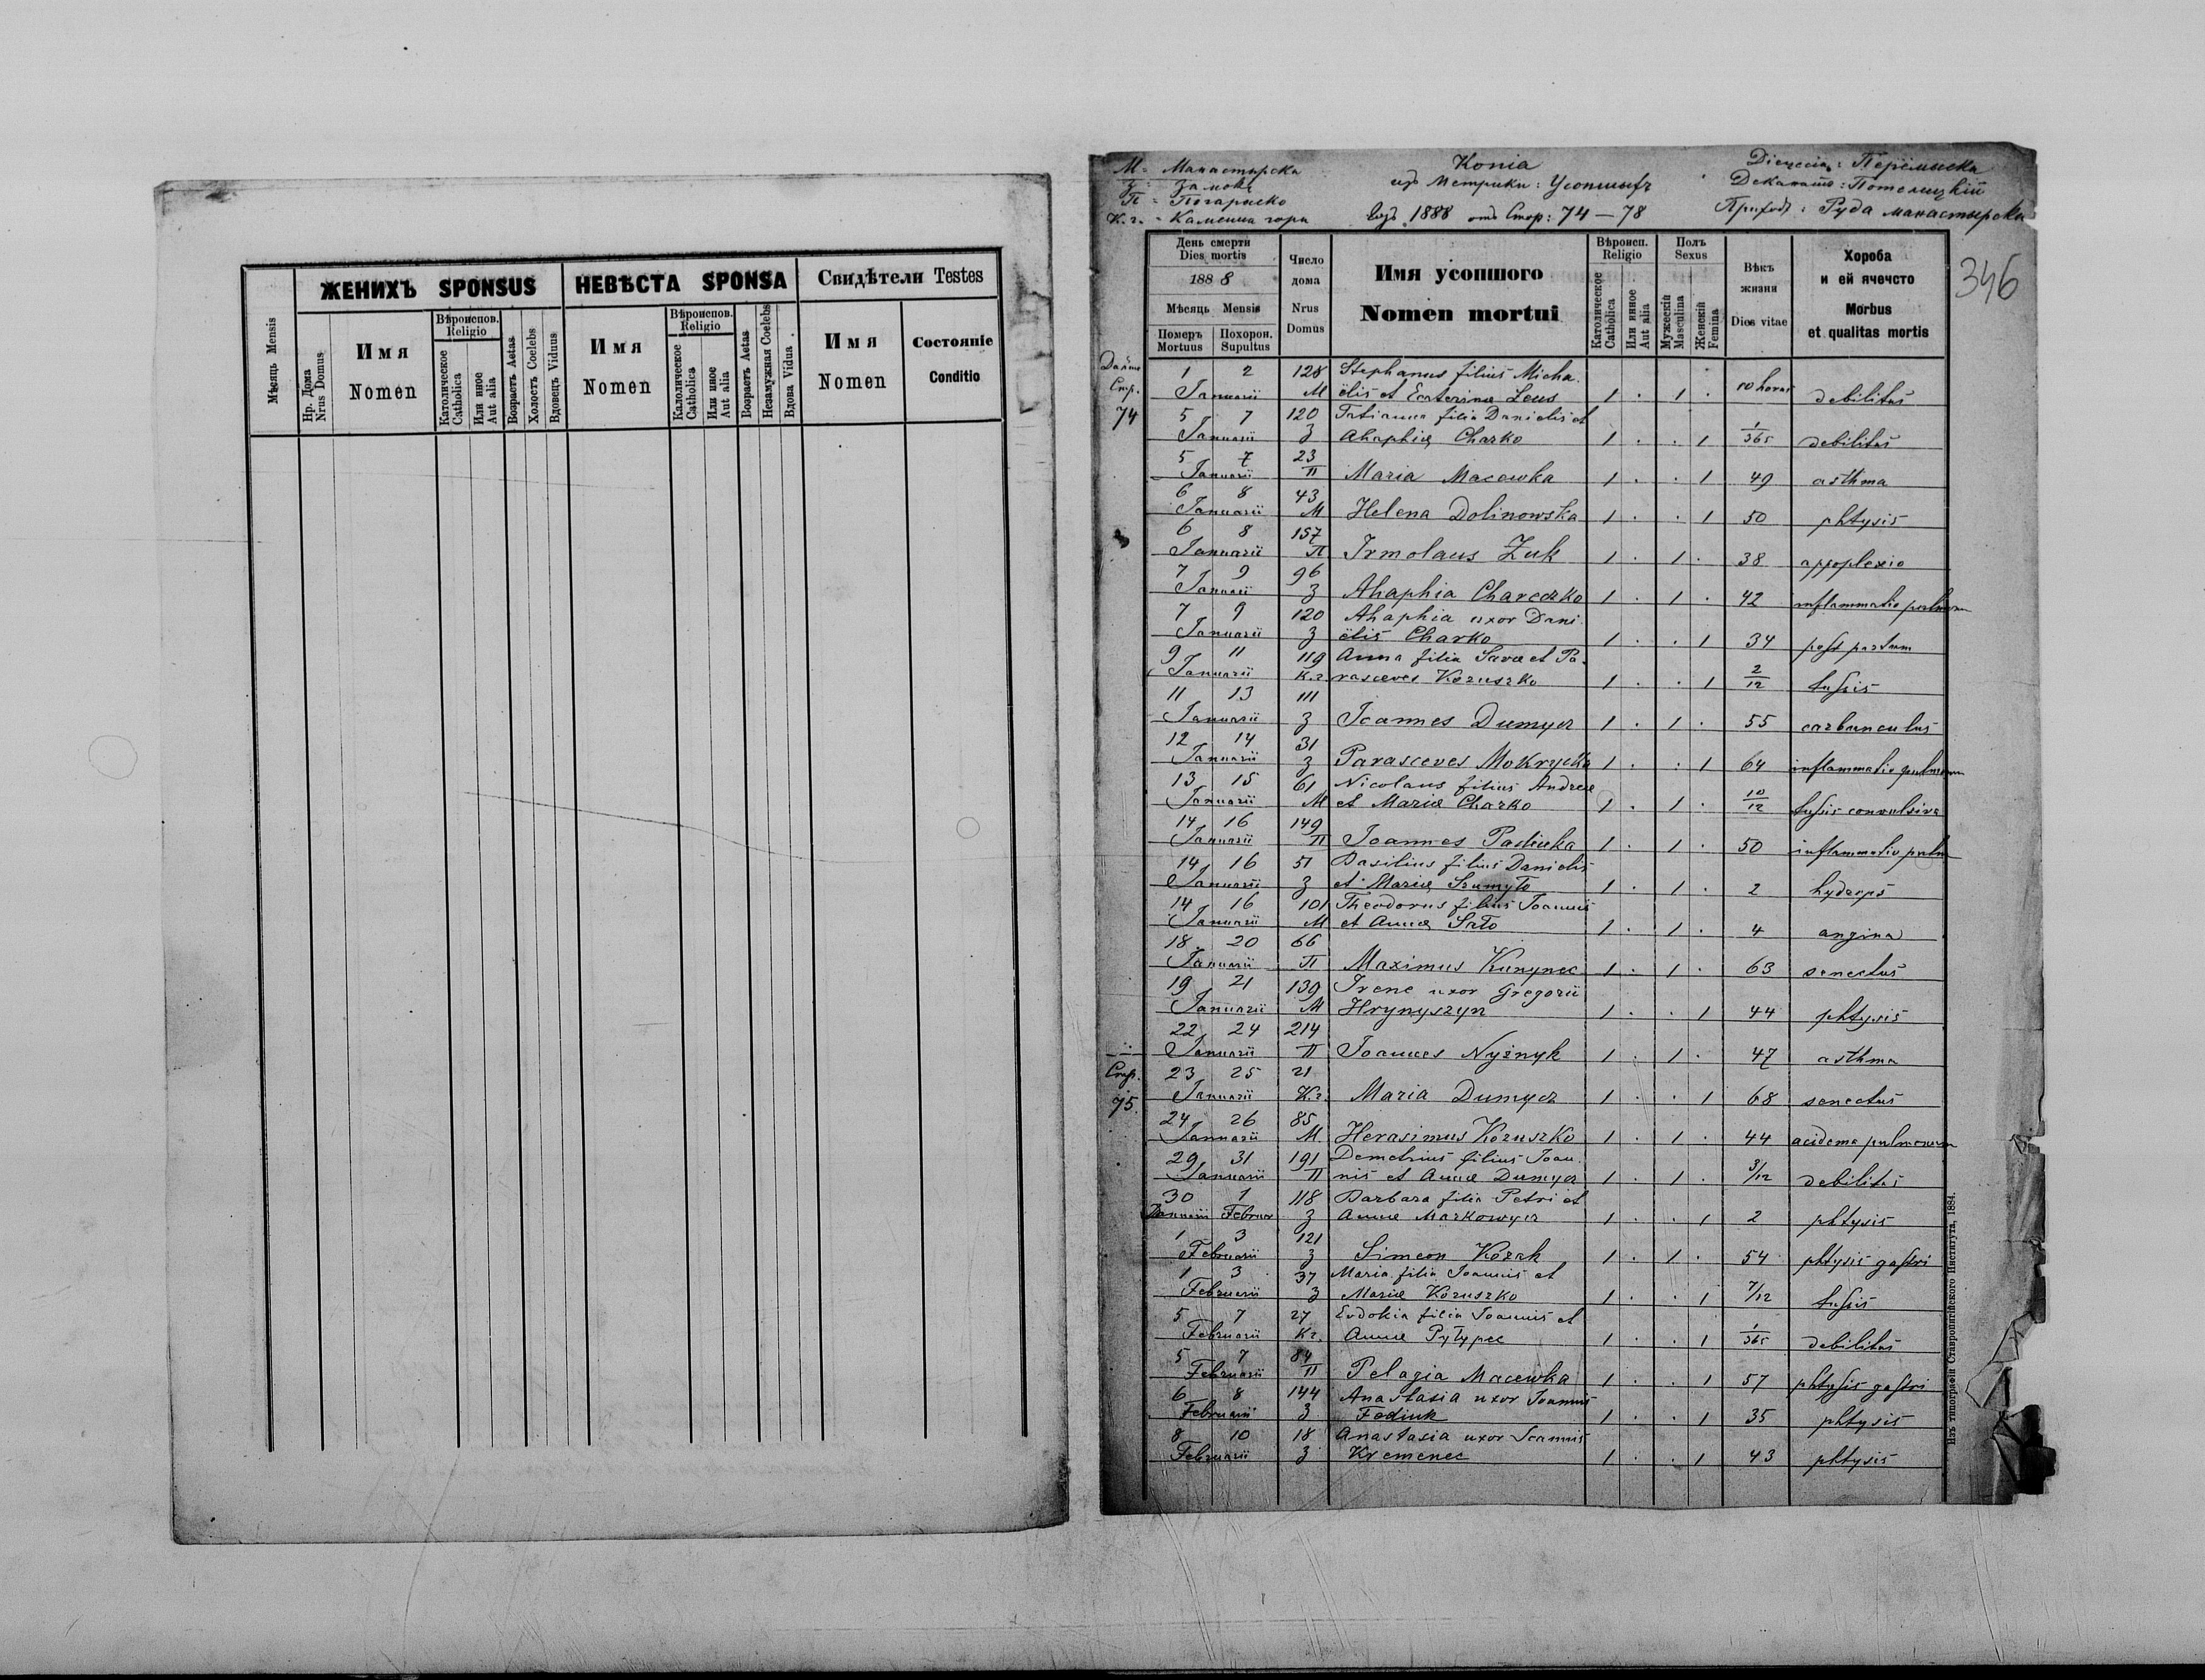 ЖЕНИХЪ SPONSUS
НЕВѢСТА SPONSA
Свидѣтели Testes
Мѣсяць Mensis
Нр. Дома
Nrus Domus
Имя
Nomen
Вѣроиспов.
Religio
Католическое
Catholica
Или иное
Aut alia
Возрастъ Aetas
Холостъ Coelebs
Вдовецъ Viduus
Имя
Nomen
Вѣроиспов.
Religio
Католическое
Catholica
Или иное
Aut alia
Возрастъ Aetas
Незамужная Coelebs
Вдова Vidua
Имя
Nomen
Состояніе
Conditio
М = Манастырска
З = Замокъ
П = Погариско
К.г. = Каменна гора
Копіа
изъ Метрики: Усопшыхъ
1888 отъ Стор: 74 — 78
Діецезіа: Перемыска
Деканатъ: Потелицкій
Приходъ: Руда манастырска
346
День смерти
Dies mortis
1888
Мѣсяць Mensis
Померъ
Mortuus
Похорон.
Supultus
Число
дома
Nrus
Domus
Имя усопшого
Nomen mortui
Вѣроисп.
Religio
Католическое
Catholica
Или инное
Aut alia
Полъ
Sexus
Мужескій
Masculina
Женскій
Femina
Вѣкъ
жизни
Dies vitae
Хороба
и ей ячечсто
Morbus
et qualitas mortis
Стр.
74
1 2 128 Stephanus filius Micha
Januarii М ëlis et Ecaterinae Leus 1 . 1 . 10 horas debilitas
5 7 120 Tatianna filia Danielis et
Januarii З Ahaphiae Charko 1 . . 1 1/365 debilitas
5 7 23
Januarii П Maria Macewka 1 . . 1 49 asthma
6 8 43
Januarii М Helena Dolinowska 1 . . 1 50 phtysis
6 8 157
Januarii П Irmolaus Zuk 1 . 1 . 38 appoplexio
7 9 96
Januarii З Ahaphia Chareczko 1 . 1 . 42 inflammatio pulmonum
7 9 120 Ahaphia uxor Dani
Januarii З ëlis Charko 1 . . 1 34 post partum
9 11 119 Anna filia Savae et Pa-
Januarii К.г. rasceves Kozuszko 1 . . 1 2/12 tussis
11 13 111
Januarii З Joannes Dumycz 1 . 1 . 55 carbunculus
12 14 31
Januarii З Parasceves Mokrycka 1 . . 1 64 inflammatio pulmonum
13 15 61 Nicolaus filius Andreae
Januarii М et Mariae Charko 1 . 1 . 10/12 tussis convulsiva
14 16 149
Januarii П Joannes Pasteka 1 . 1 . 50 inflammatio pulm
14 16 51 Basilius filius Danielis
Januarii З et Mariae Szumyło 1 . 1 . 2 hydrops
14 16 101 Theodorus filius Joannis
Januarii М et Annae Sało 1 . 1 . 4 angina
18 20 66
Januarii П Maximus Kunynec 1 . 1 . 63 senectus
19 21 139 Irene uxor Gregorii
Januarii М Hrynyszyn 1 . . 1 44 phtysis
22 24 214
Januarii П Joannes Nyżnyk 1 . 1 . 47 asthma
Стр.
75.
23 25 21
Januarii К.г. Maria Dumycz 1 . . 1 68 senectus
24 26 85
Januarii М. Herasimus Kozuszko 1 . 1 . 44 acidema pulmonum
29 31 191 Demetrius filius Joan
Januarii П nis et Annae Dumycz 1 . 1 . 3/12 debilitas
30 1 118 Barbara filia Petri et
Januarii Februar З Annae Markowycz 1 . . 1 2 phtysis
1 3 121
Februarii З Simeon Kozak 1 . 1 . 54 phtysis gastri
1 3 37 Maria filia Joannis et
Februarii З Mariae Kozuszko 1 . . 1 7/12 tussis
5 7 27 Evdokia filia Joannis et
Februarii Кг. Annae Pyłypec 1 . . 1 1/365 debilitas
5 7 84
Februarii П Pelagia Macewka 1 . . 1 57 phtysis gastri
6 8 144 Anastasia uxor Joannis
Februarii З Fediuk 1 . . 1 35 phtysis
8 10 18 Anastasia uxor Joannis
Februarii З Kremenec 1 . . 1 43 phtysis
Изъ типографіи Ставропигійского Института, 1884.